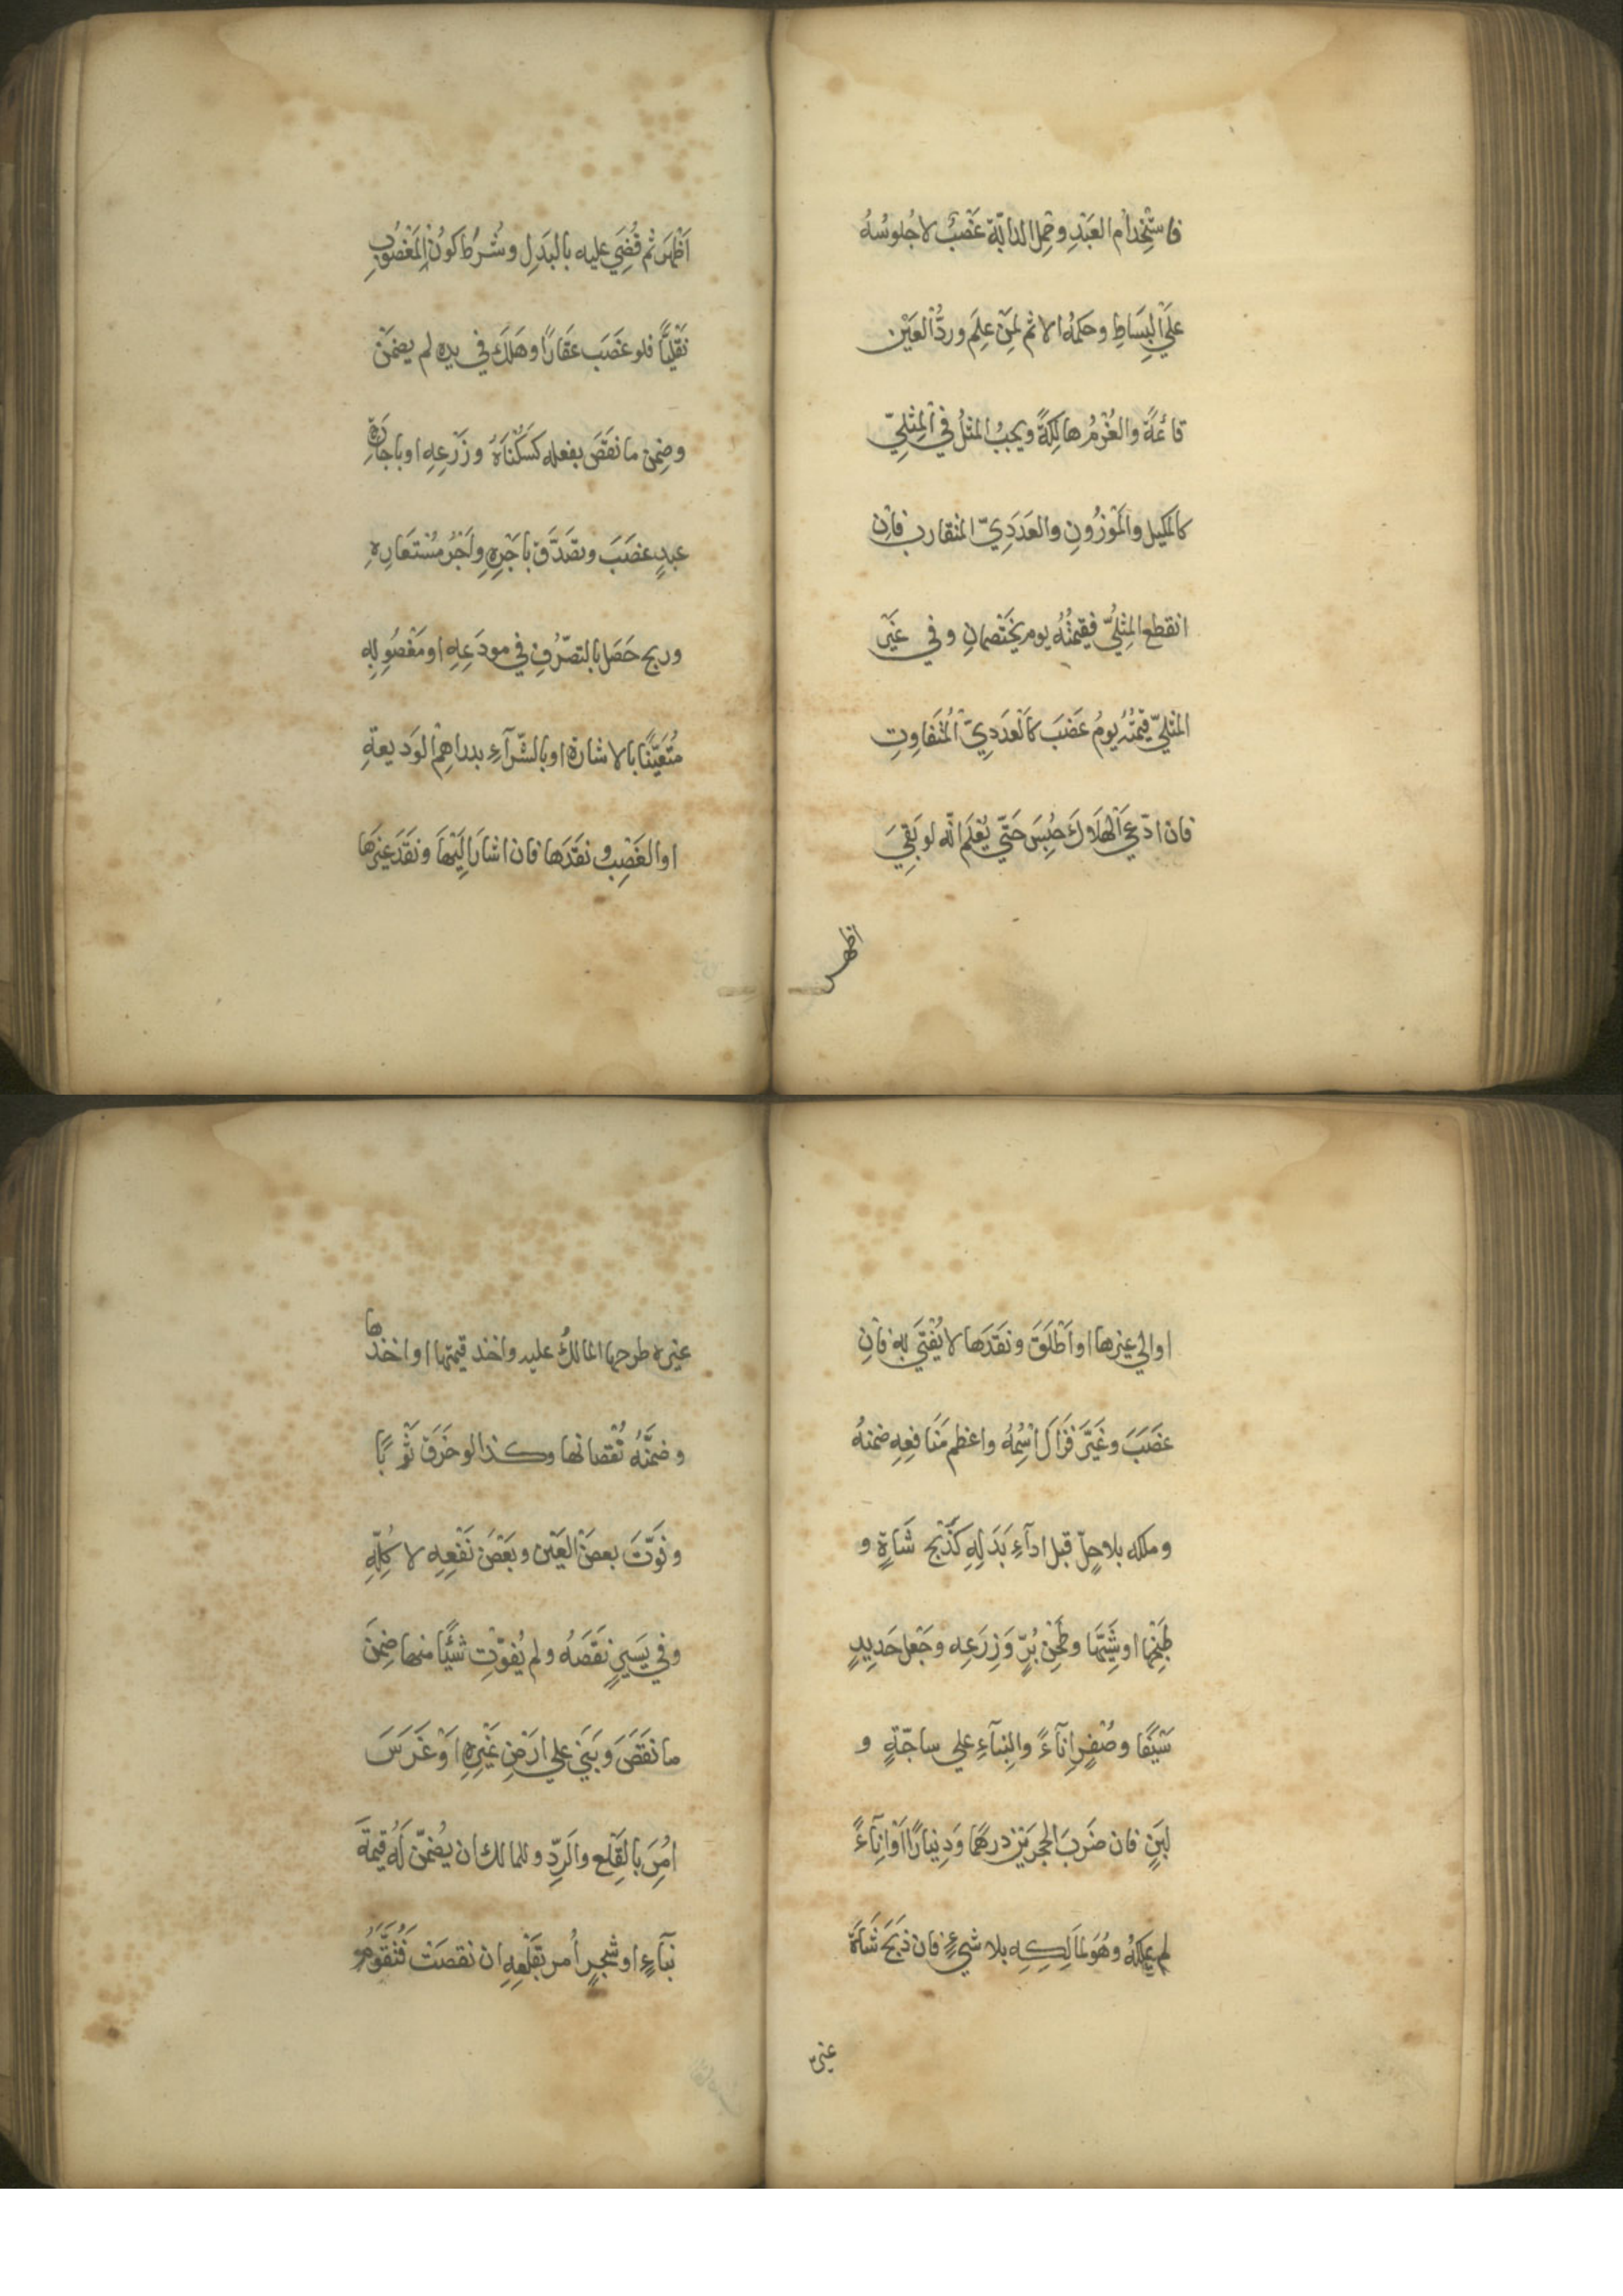 فاستخدام العَبْدِ وحَمْل الدابّة غَصْبٌ لا جُلوسُهُ
علَى البِسَاطِ وحكمُه الاثم لمَنْ عَلِمَ وردُّ العَيْن
قائمَةً والغُرْمُ هالِكَةً ويجبُ المثلُ في المِثليّ
كالمَكيل والمَوْزُونِ والعَدَدِيّ المتقارب فاِن
انقطع المِثليُّ فقيمتُهُ يوم يَخْتَصِمانِ وفي غَيْر
المثليّ قيمتُهُ يومُ غَصَبَ كالعَدَدِيّ المُتَفاوِتِ
فان ادّعي الهَلاَكَ حُبِسَ حَتّي يُعْلَم انّه لو بَقِيَ
اظهر
اَظْهَرَ ثم قُضِيَ عليه بالبَدَلِ وشُرِطَ كونُ المَغْصُوبِ
نَقْلِيًّا فلو غَصَبَ عَقَارًا وهَلَكَ في يدِهِ لم يضمَنْ
وضِمنَ ما نَقَصَ بفعله كَسُكْنَاهُ وزَرْعِهِ او باجَارَةِ
عبدٍ غصَبَ وتصَدَّقَ باَجْرِهِ واَجْرُ مُسْتَعَارِهِ
وربح حَصَل بالتصّرُفِ في مودَعِهِ او مَغْصُوبِهِ
مُتَعَيِّنًا بالاشارة او بالشّرآءِ بدراهِم الوَديعةِ
او الغَصْبِ و نَقَدَها فان اشارَ اِلَيْها ونَقَدَ غيرَها
او الي غيرها او اَطْلَقَ ونَقَدَها لا يُفْتَيَ بِه فاِن
غصَبَ وغَيَّرَ فزَالَ اسْمُهُ واعظم مَنَافعِهِ ضمنهُ
وملكه بلا حِلّ قبل ادآءِ بَدَلِهِ كَذَبْحِ شَاةٍ و
طَبْخِها او شَيِّها وطَحْن بُرٍّ وَزَرْعِه وجَعْل حَدِيدٍ
سَيْفًا وصُفْرٍ اِنآءً والبِنآءِ علي ساجّةٍ و
لبِنٍ فان ضَرَبَ الحجرَيْن درهَمًا وَدِينارًا اَوْ اِنآءً
لم يملكهُ وهُوَ لمالِكِهِ بلا شيءٍ فان ذَبَحَ شَاةَ
غيره
غيره طرحها المالكُ عليه واخذ قيمتها او اخذها
وضمّنَهُ نُقْصانها وكذا لو خَرَقَ ثَوْبًا
وفَوَّتَ بعضَ العَيْن وبَعْضَ نَفْعِهِ لا كُلِّهِ
وفي يَسيرٍ نَقَصَهُ ولم يُفوّتْ شيئًا منها ضِمنَ
ما نَقَصَ وبَنَي علي ارَضِ غَيْرِهِ اَوْ غَرَسَ
اُمِرَ بالقَلْعِ والرَدِّ وللمالك ان يُضمّنَ لَهُ قيمةَ
بنآءٍ او شجرٍ اُمر بقَلْعِهِ ان نقصَتْ فتُقَوَّمُ